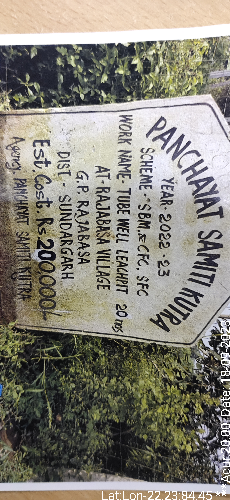 PANCHAYAT SAMITI KUTRA
YEAR-2022-23
SCHEME-SBM & CFC, SFC
WORK NAME-TUBE WELL LEACHPIT 20 nos
AT-RAJABASA VILLAGE
G.P. RAJABASA
DIST-, SUNDARGARH
Est. Cost. Rs 200,000/-
Agency. PANCHAYAT SAMITI KUTRA
Lat Lon-22.23,84.45